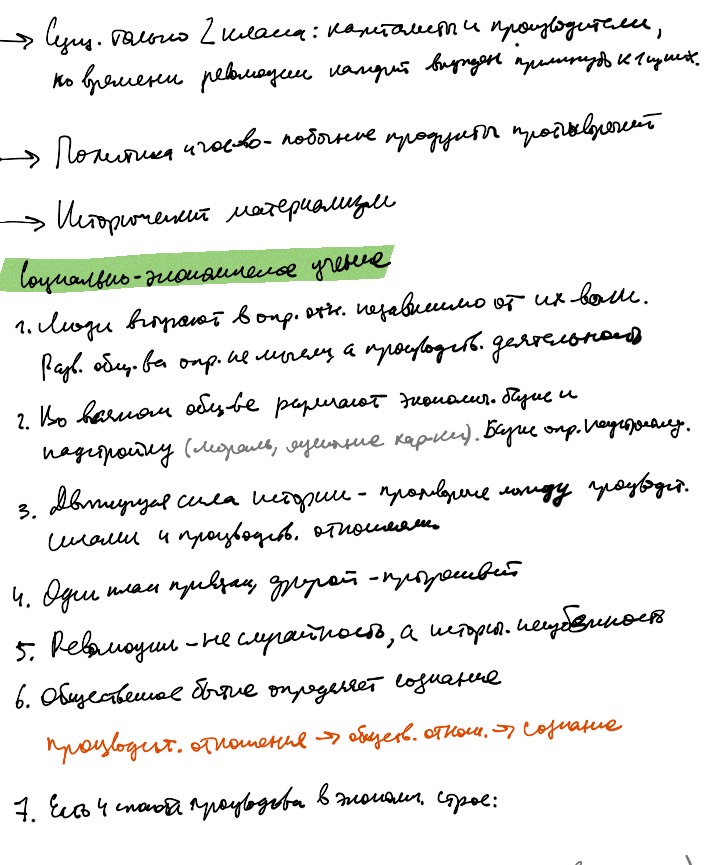 → Сущ. только 2 класса: капиталисты и производители,
ко времени революции каждый вынужден примкнуть к 1 из них.
→ Политика и гос-во - побочные продукты противоречий
→ Исторический материализм
Социально-экономическое учение
1. Люди вступают в опр. отн. независимо от их воли.
Разв. общ-ва опр. не мысль, а производств. деятельность
2. Во всяком общ-ве различают экономич. базис и
надстройку (мораль, душевные кар-ки). Базис опр. надстройку.
3. Движущая сила истории - противоречие между производит.
силами и производств. отношениями
4. Один класс привязан, другой - прогрессивный
5. Революции - не случайность, а историч. неизбежность
6. Общественное бытие определяет сознание
производст. отношения → обществ. отнош. → сознание
7. Есть 4 способа производства в эконом. строе: